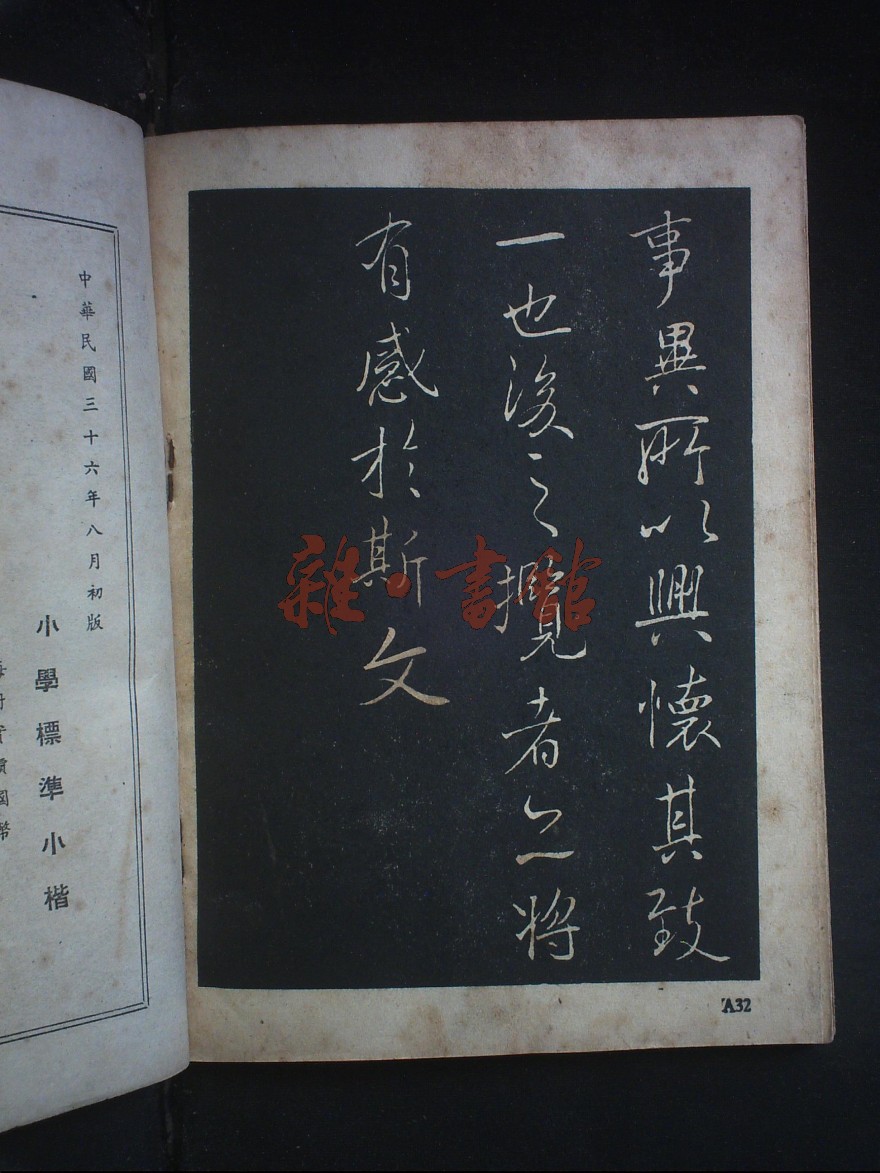 事異所以興懷其致
一也後之攬者亦將
有感於斯文
A32
中華民國三十六年八月初版
小學標準小楷
國幣
雜·書館